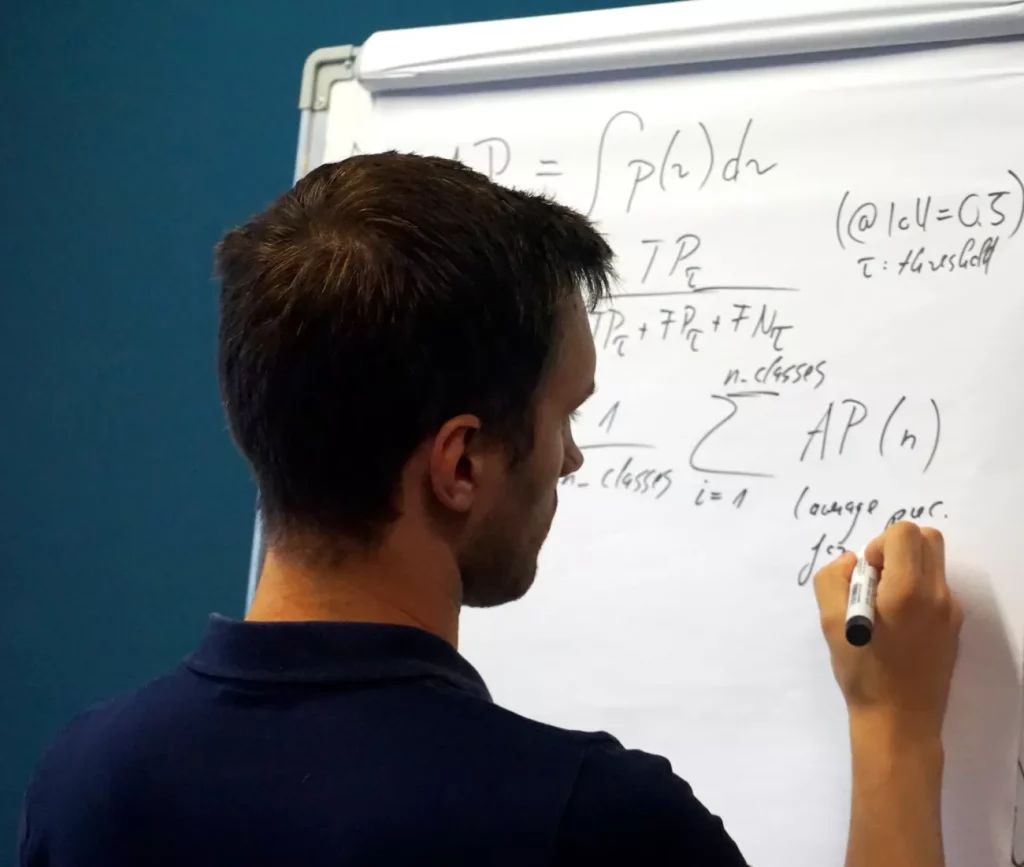 AP = ∫ p(r) dr
(@ IoU = 0.5)
τ: threshold
TPτ
TPτ + FPτ + FNτ
n_classes
1
n_classes
Σ
AP(n)
i=1
(average prec.
for